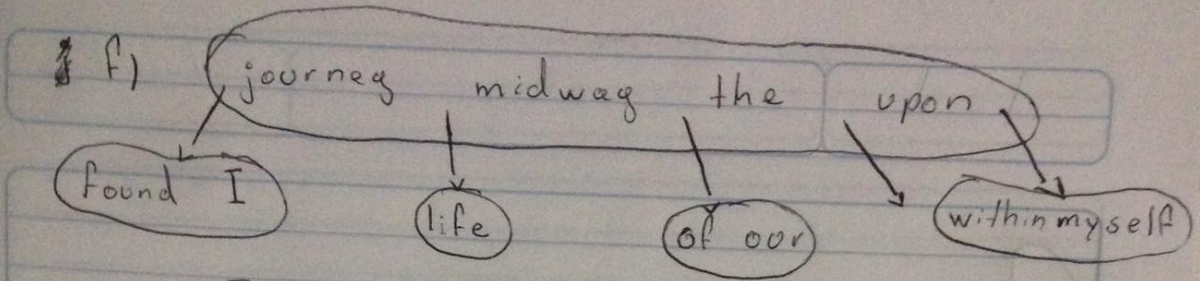 f) journey midway the upon
found I life of our within myself